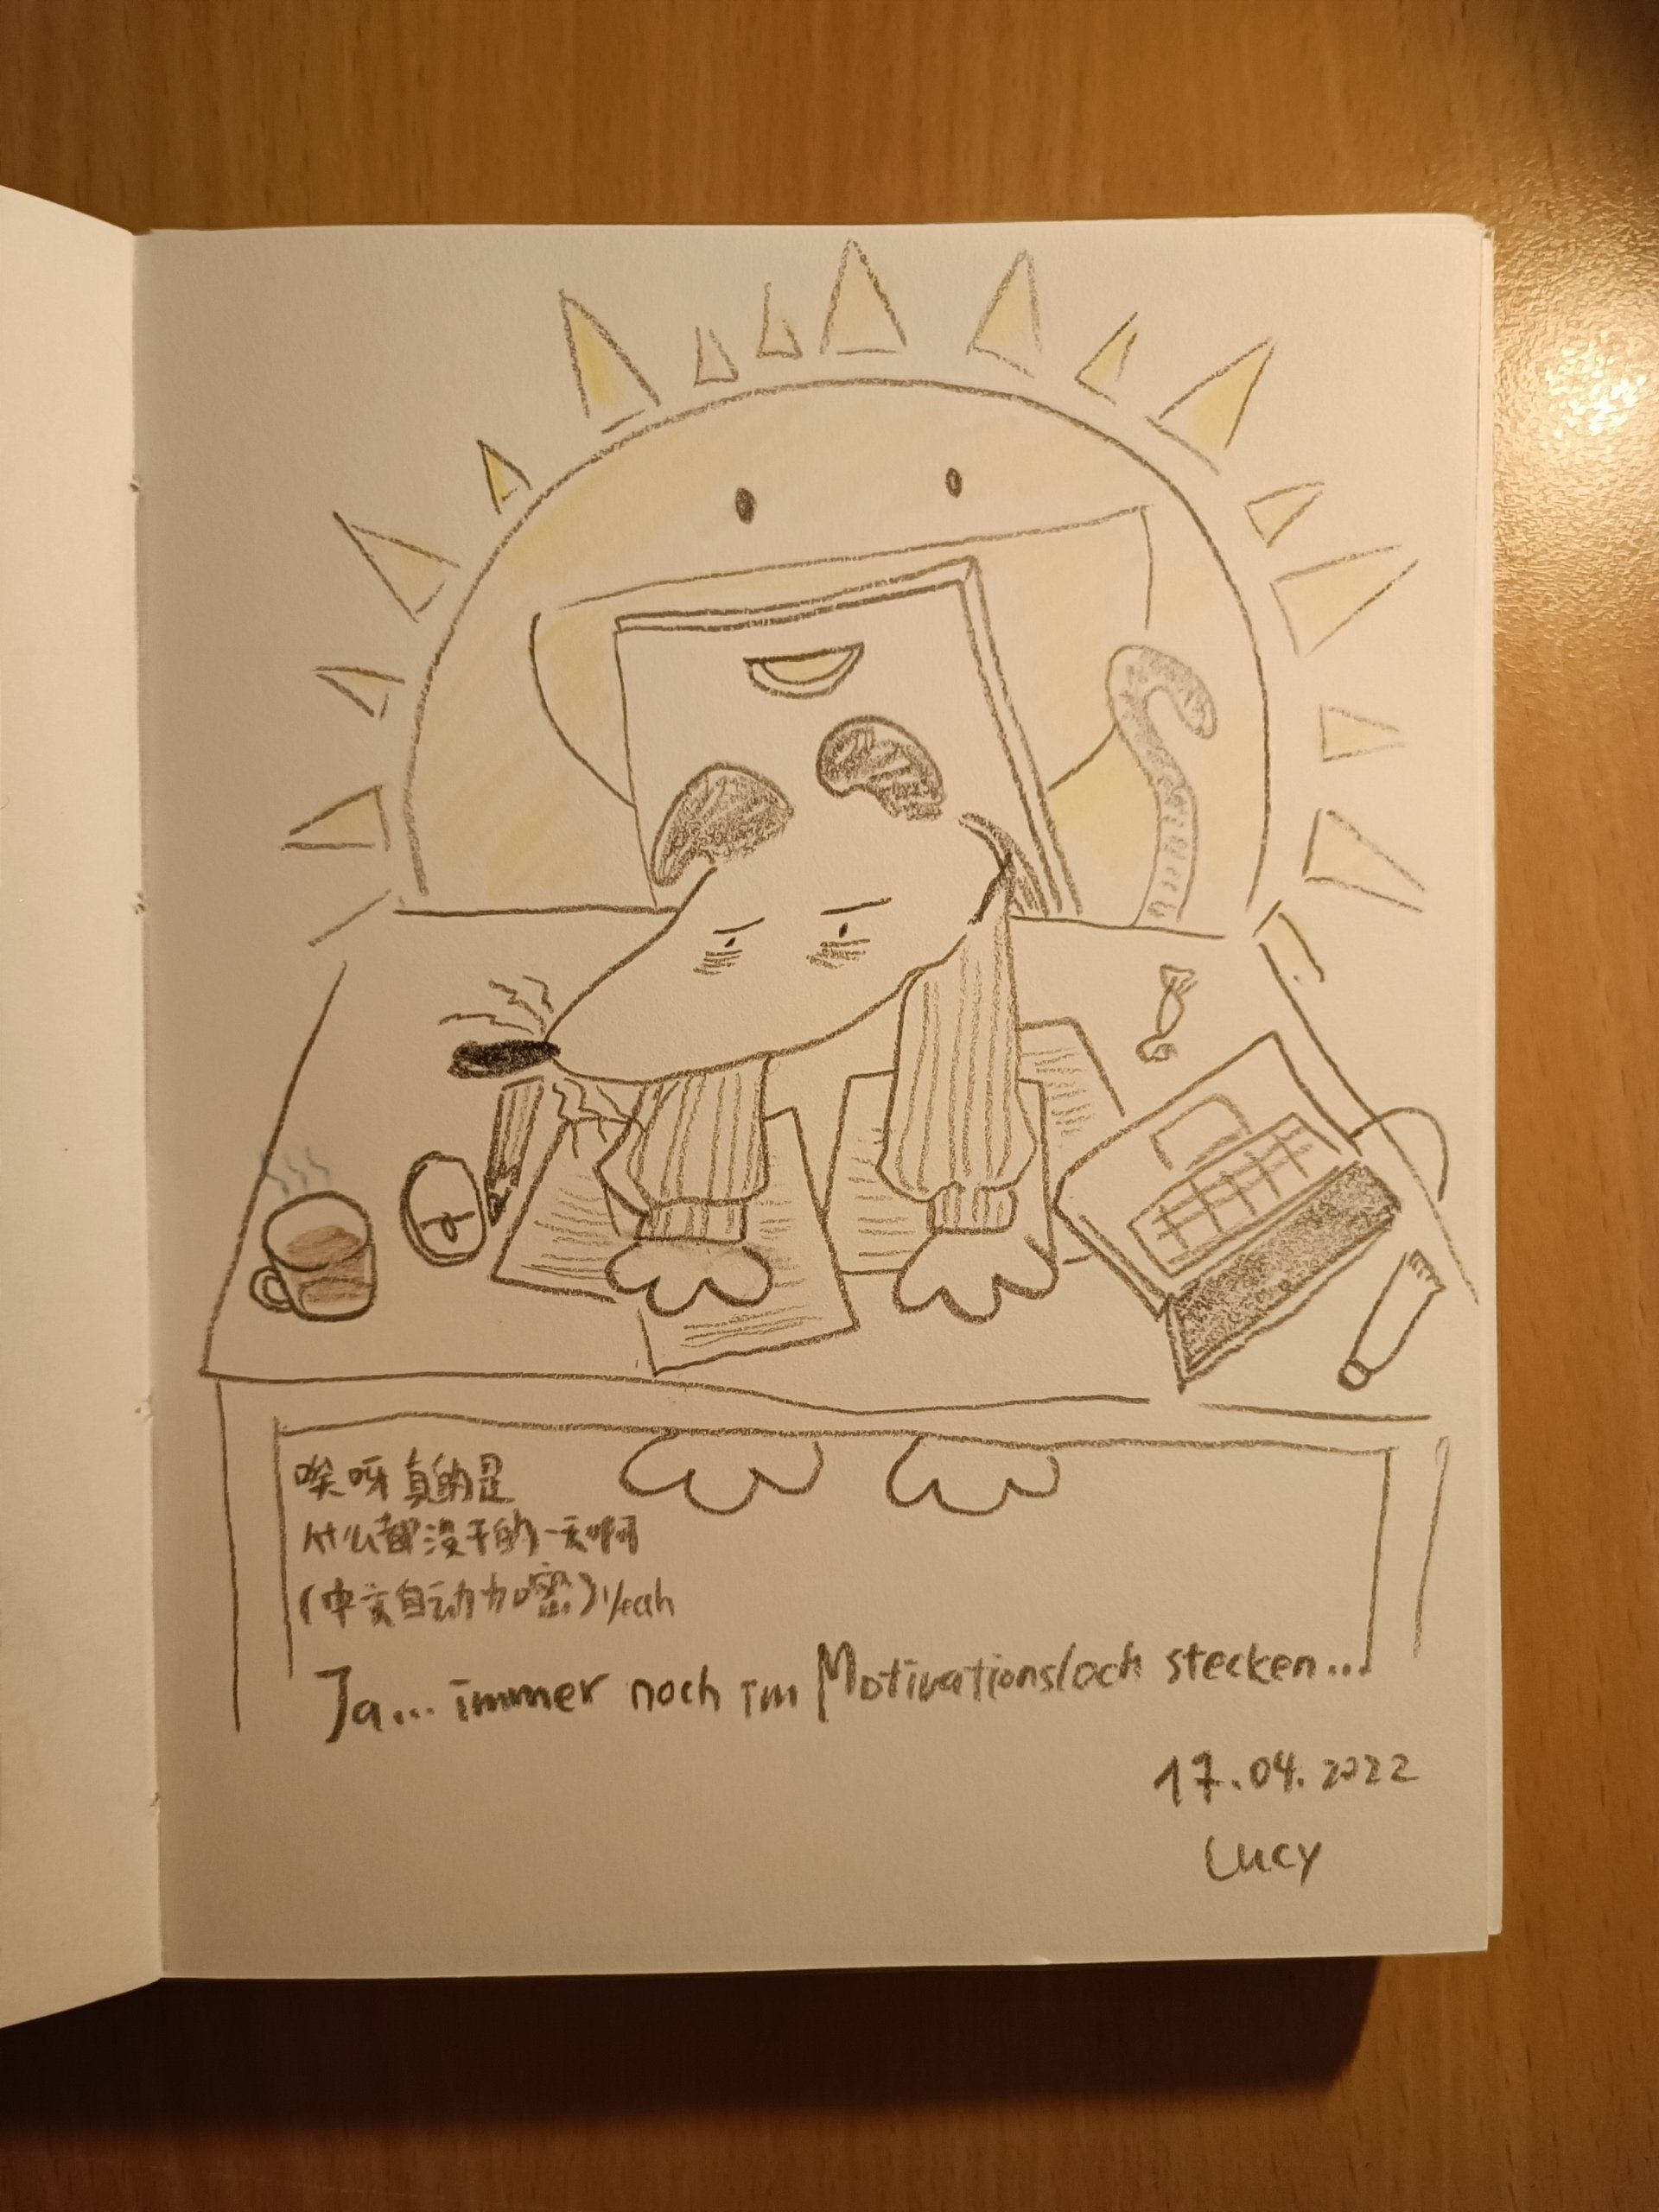 唉呀真的是
什么都没干的一天啊
(中文自动加密) Yeah
Ja... immer noch im Motivationsloch stecken...
17.04.2022
Lucy